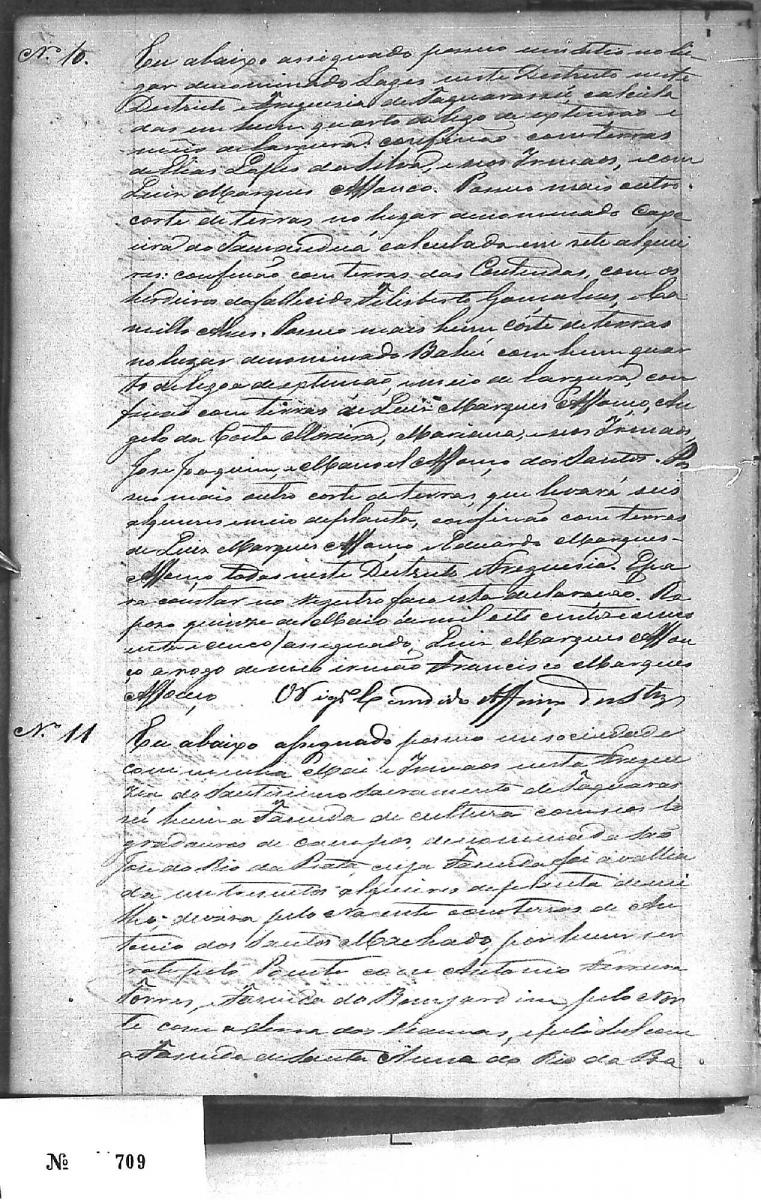 Nº 10. Eu abaixo assignado possuo um sitio no lu
gar denominado Lages neste Destricto neste
Destricto e Freguesia de Taquarassú calcula
das em hum quarto de legoa de extenção e
meio de largura: confinão com terras
de Elias Lopes da Silva, e seos Irmaos, e com
Luiz Marques Affonço. Possuo mais outro
corte de terras no lugar denominado Capo
eira do Tamanduá calculada em sete alquei
res: confinão com terras das Contendas, com os
herdeiros do fallecido Felisberto Gonçalves, e Ca
millo Alves. Possuo mais hum córte de terras
no lugar denominado Bahú com hum quar
to de legoa de extenção, e meio de largura, con
finão com terras de Luiz Marques Affonço, An
gelo da Costa Moreira, Mariana, e seos Irmaos,
Jose Joaquim, e Manoel Affonço dos Santos. Po
suo mais outro corte de terras, que levará seis
alqueires e meio de planta, confinão com terras
de Luiz Marques Affonço e Eduardo Marques
Affonço todas neste Destricto e Freguesia. E pa
ra constar no registro faço esta declaração. Ra
pozo quinze de Maio de mil oito centos e cinco
enta e cinco / assignado, Luiz Marques Affon
ço a rogo de meu irmão Francisco Marques
Affonço O Vigº Candido Affonço
Nº 11 Eu abaixo assignado possuo em sociedade
com minha Mai e Irmaos nesta Fregue
zia do Santissimo Sacramento de Taquaras
sú huma Fazenda de cultura com seos lo
gradouros de campos, denominada São
José do Rio da Prata cuja Fazenda foi avallia
da em trezentos alqueires de planta de mi
lho: deviza pelo nacente com terras de An
tonio dos Santos Machado, por hum ser
rote pelo Poente com Antonio Ferreira
Torres, e Fazenda do Bom jardim pelo Nor
te com a Serra dos, e pelo Sul com
a Fazenda de Santa Anna do Rio da Pra
Nº 709